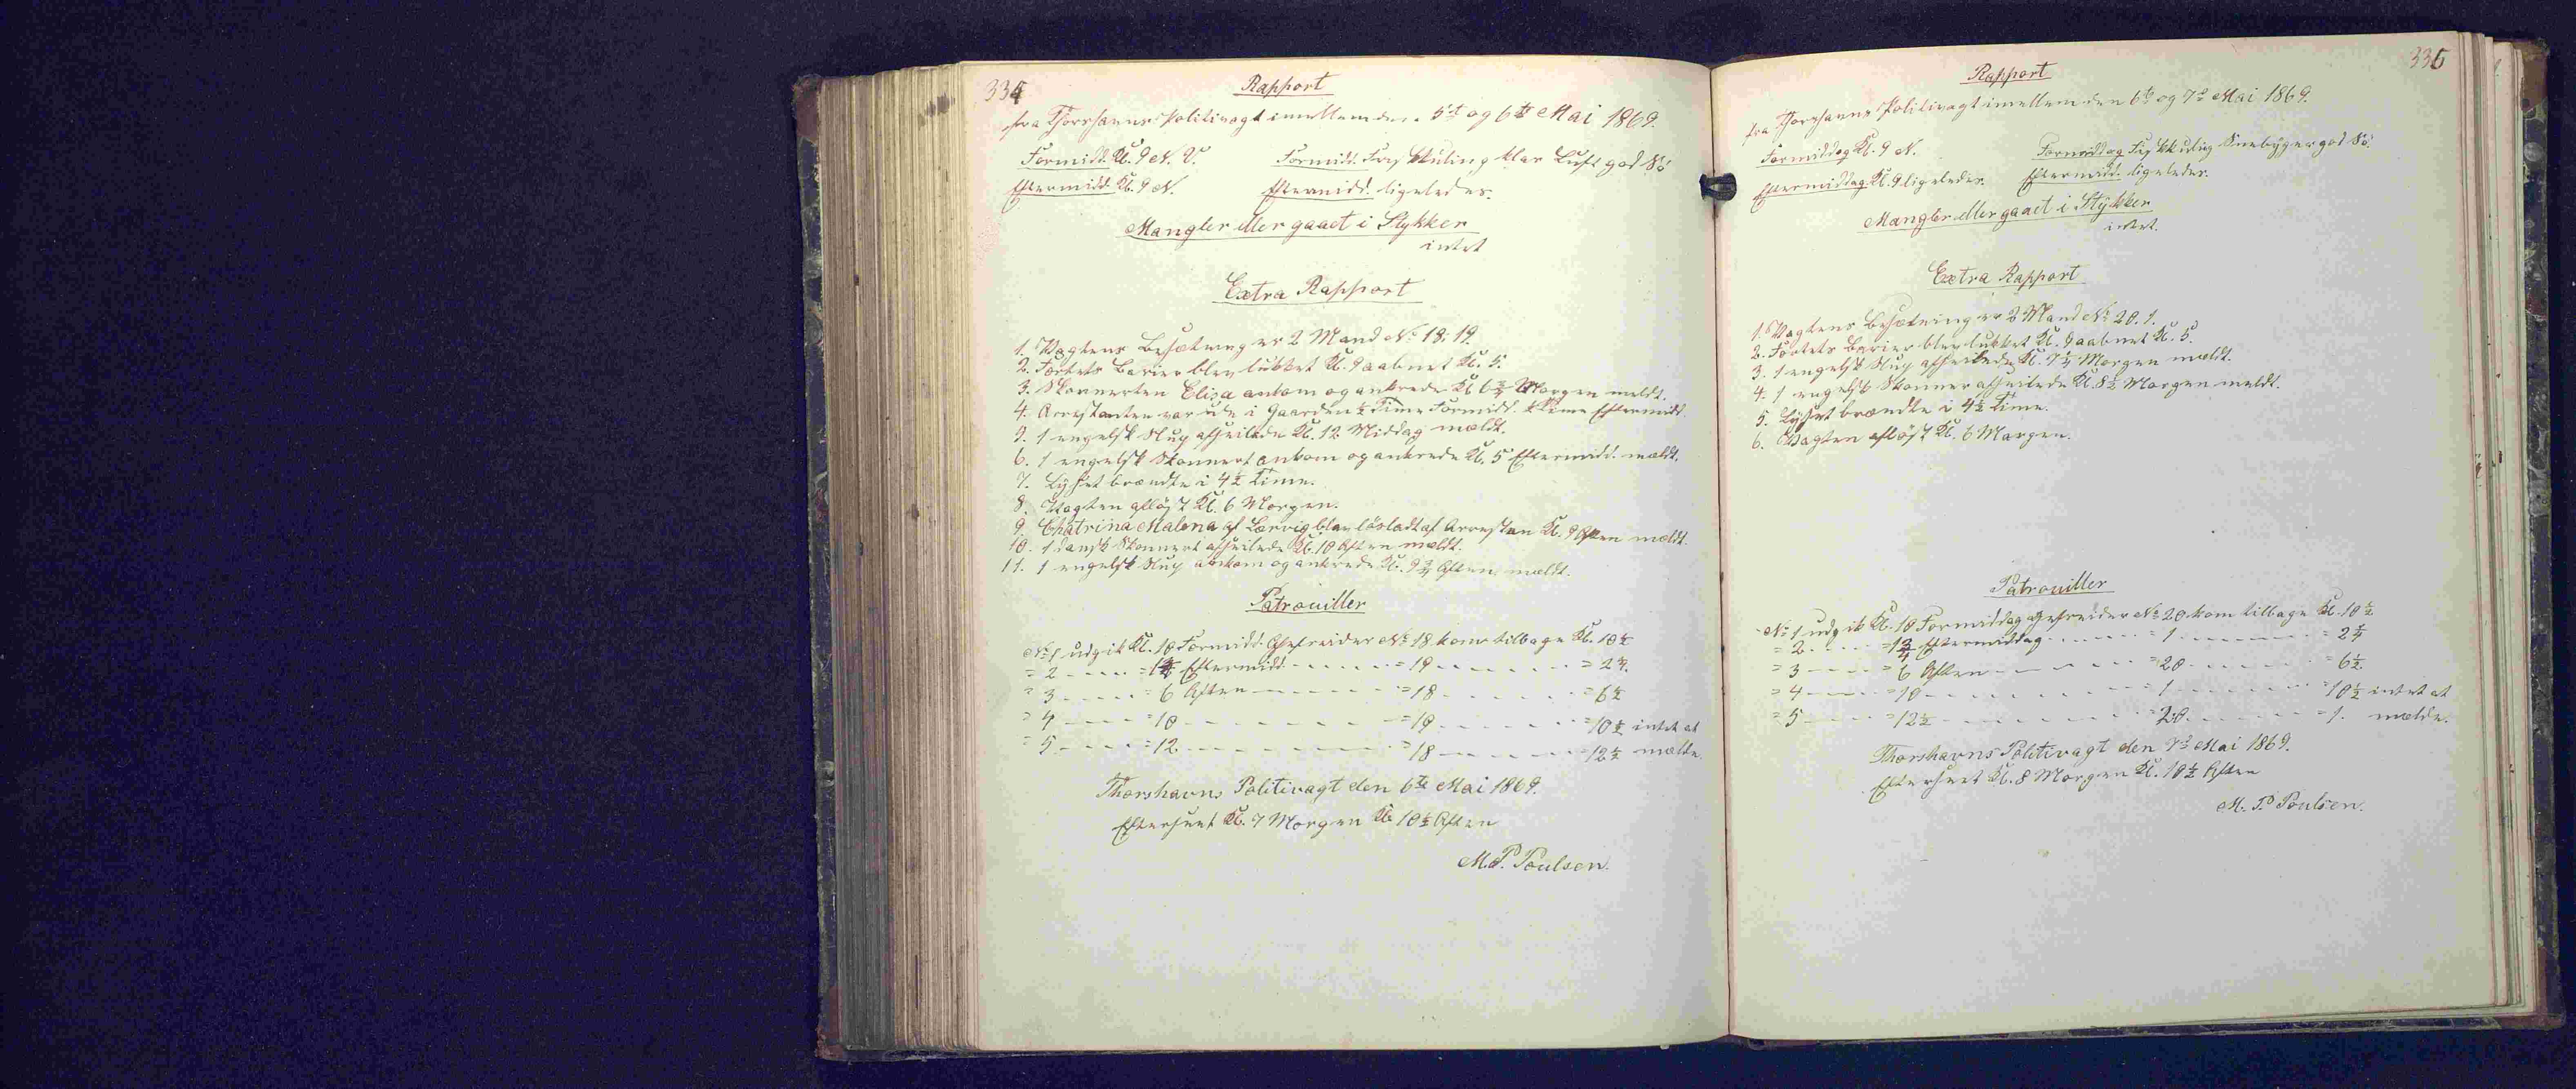 334
Rapport
fra Thorshavns Politivagt imellem den 5te og 6te Mai 1869.
Formidd. Kl. 9 N. V. Formidd. Frisk Kuling klar Luft god Sö.
Eftermidd. Kl. 9 N. Eftermidd. ligeledes.
Mangler eller gaaet i Stykker
intet
Extra Rapport
1. Vagtens Besætning er 2 Mand No 18. 19.
2. Fortets Barier blev lukket Kl. 9 aabnet Kl. 5.
3. Skonnerten Elisa ankom og ankrede Kl. 6 3/4 Morgen meldt.
4. Arrestanten var ude i Gaarden 1/2 Time Formidd. 1/2 Time Eftermidd.
5. 1 engelsk Slup afseilede Kl. 12 Middag mældt.
6. 1 engelsk Skonnert ankom og ankrede Kl. 5 Eftermidd. mældt.
7. Lyset brændte i 4 1/2 Time.
8. Vagten aflöst Kl. 6 Morgen.
9. Chatrina Malena af Lervig blev lösladt af Arresten Kl. 9 Aften mældt.
10. 1 dansk Skonnert afseilede Kl. 10 Aften mældt.
11. 1 engelsk Slup ankom og ankrede Kl. 9 3/4 Aften mældt.
Patrouiller
No 1 udgik Kl. 10 Formidd. Gefreider No 18 kom tilbage Kl. 10 1/2
= 2 - - - = 1 3/4 Eftermidd. - - - = 19 - - - = 2 1/4.
= 3 - - - = 6 Aften - - - = 18 - - - = 6 1/2
= 4 - - - = 10 - - - = 19 - - - = 10 1/2 intet at
= 5 - - - = 12 - - - = 18 - - - = 12 1/2 mælde.
Thorshavns Politivagt den 6te Mai 1869.
Efterseet Kl. 7 Morgen Kl. 10 1/2 Aften
M. P. Poulsen.
335
Rapport
fra Thorshavns Politivagt imellem den 6te og 7de Mai 1869.
Formiddag Kl. 9 N. Formiddag Frisk Kuling Sneebyger god Sö.
Eftermiddag Kl. 9 ligeledes. Eftermidd. ligeledes.
Mangler eller gaaet i Stykker
intet.
Extra Rapport
1. Vagtens Besætning er 2 Mand No 20. 1.
2. Fortets Barier blev lukket Kl. 9 aabnet Kl. 5.
3. 1 engelsk Slup afseilede Kl. 7 1/4 Morgen mældt.
4. 1 engelsk Skonner afseilede Kl. 8 1/2 Morgen meldt.
5. Lyset brændte i 4 1/2 Time.
6. Vagten aflöst Kl. 6 Morgen.
Patrouiller
No 1 udgik Kl. 10 Formiddag Gefreider No 20 kom tilbage Kl. 10 1/2
= 2 - - - = 1 3/4 Eftermiddag - - - = 1 - - - = 2 1/4
= 3 - - - = 6 Aften - - - = 20 - - - = 6 1/2.
= 4 - - - = 10 - - - = 1 - - - = 10 1/2 intet at
= 5 - - - = 12 1/2 - - - = 20 - - - = 1. mælde.
Thorshavns Politivagt den 7de Mai 1869.
Efterseet Kl. 8 Morgen Kl. 10 1/2 Aften
M. P. Poulsen.